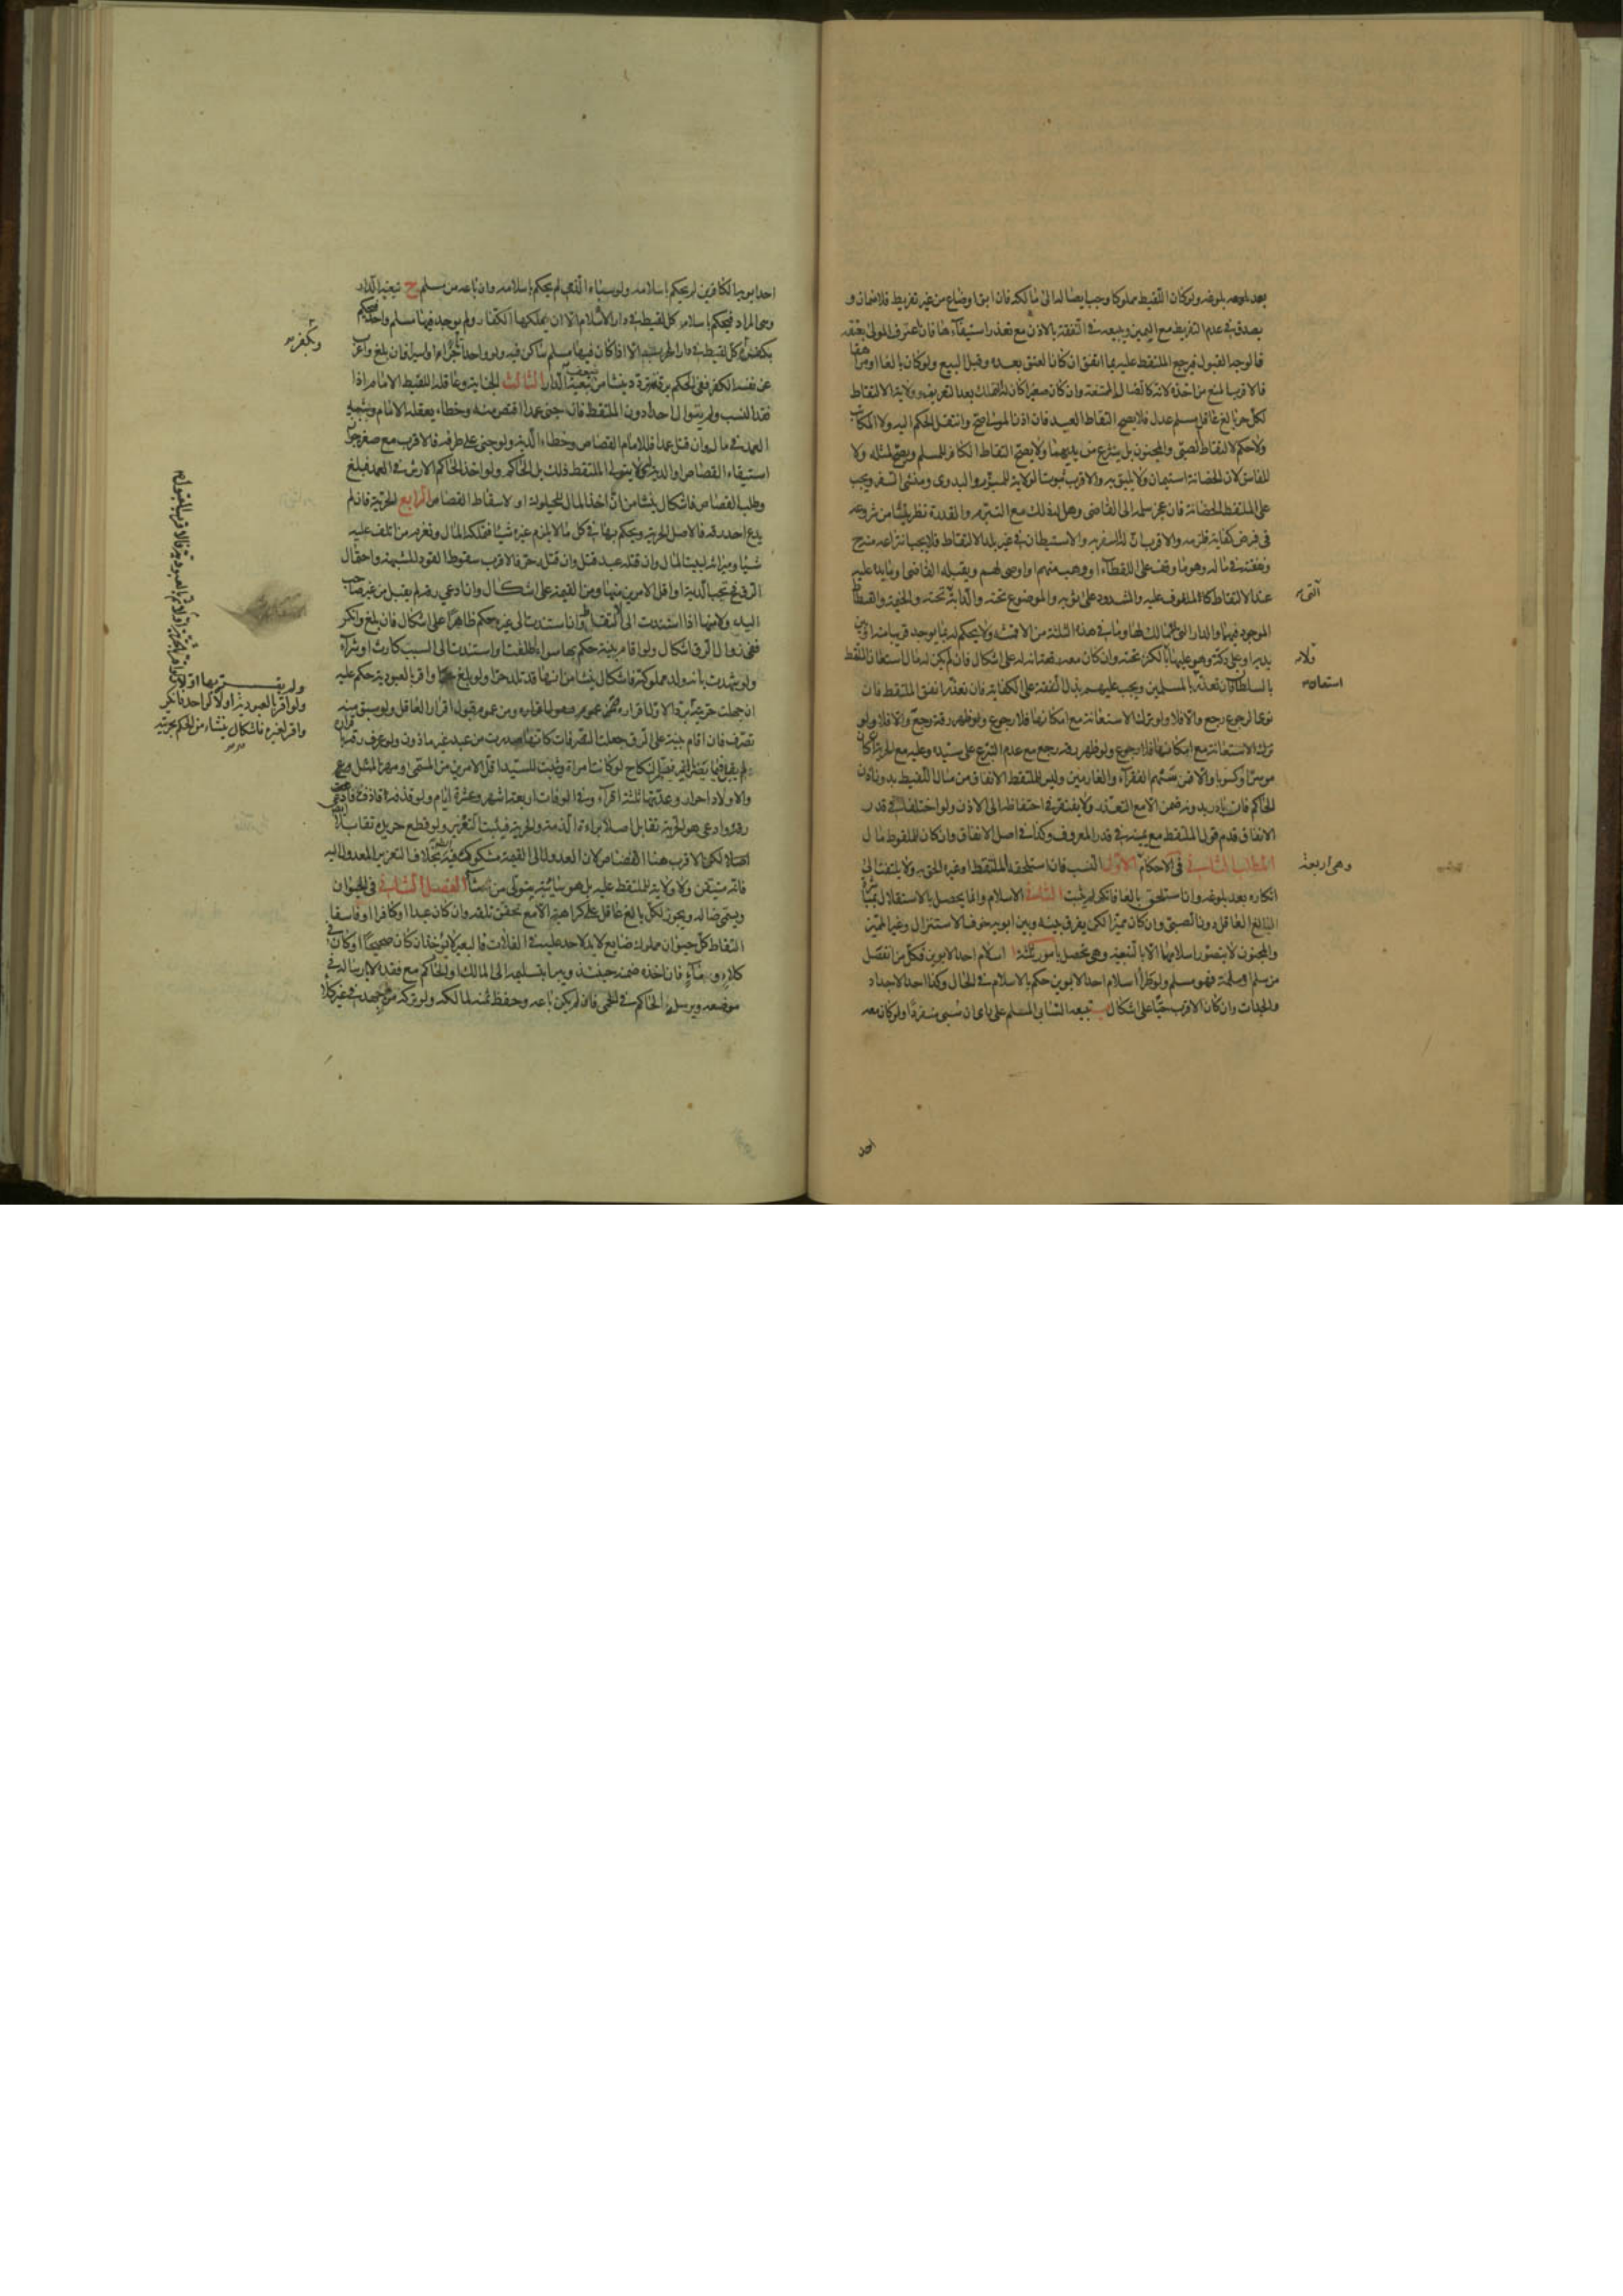 بعد بلوغه ولو كان اللقيط مملوكا وجب ايصاله الى مالكه فان ابق او ضاع من غير تفريط فلا ضمان و
يصدق في عدم التفريط مع اليمين ويبيعه في النفقة بالاذن مع تعذر استيفائها فان اعترف المولى بعتقه
فالوجه القبول فيرجع الملتقط عليه بما انفق ان كان العتق بعده وقبل البيع ولو كان بالغا او مراهقا
فالاقرب المنع من اخذه لانه كالضال الممتنع وان كان صغيرا كان له التملك بعد التعريف وولاية الالتقاط
لكل حر بالغ عاقل مسلم عدل فلا يصح التقاط العبد فان اذن المولى صح وانتقل الحكم اليه ولا المكاتب
ولا حكم لالتقاط الصبي والمجنون بل ينتزع من يديهما ولا يصح التقاط الكافر للمسلم ويصح لمثله ولا
للفاسق لان الحضانة استيمان ولا يليق به والاقرب ثبوت الولاية للمبذر والبدوي ومنشئ السفر ويجب
على الملتقط الحضانة فان عجز سلمه الى القاضي وهل له ذلك مع التبرم والقدرة نظر ينشا من شروعه
في فرض كفاية فلزمه والاقرب ان له السفر به والاستيطان في غير بلد الالتقاط فلا يجب انتزاعه منه ح
ونفقته في ماله وهو ما وقف على اللقطاء او وهب منهم او اوصى لهم ويقبله القاضي وما يده عليه
عند الالتقاط كالملفوف عليه والمشدود على ثوبه والموضوع تحته والدابة تحته والخيمة والفسطاط
الموجود فيهما والدار التي لا مالك لها وما في هذه الثلثة من الاقمشة ولا يحكم له بما يوجد قريبا منه او بين
يديه او على دكة وهو عليها ولا بالكنز تحته وان كان معه رقعة انه له على اشكال فان لم يكن له مال استعان الملتقط
بالسلطان فان تعذر بالمسلمين ويجب عليهم بذل النفقة على الكفاية فان تعذر انفق الملتقط فان
نوى الرجوع رجع والا فلا ولو ترك الاستعانة مع امكانها فلا رجوع ولو ظهر رقه رجع والا فلا ولو
ترك الاستعانة مع امكانها فلا رجوع ولو ظهر رقه رجع مع عدم التبرع على سيده وعليه مع الحرية ان كان
موسرا او كسوبا والا فمن سهم الفقراء والغارمين وليس للملتقط الانفاق من مال اللقيط بدون اذن
الحاكم فان بادر بدونه ضمن الا مع التعذر ولا يفتقر في احتفاظه الى الاذن ولو اختلفا في قدر
الانفاق قدم قول الملتقط مع يمينه في قدر المعروف وكذا في اصل الانفاق وان كان للملقوط مال
المطلب الثاني في الاحكام الاول النسب فان استلحقه الملتقط او غيره الحق به ولا يلتفت الى
انكاره بعد بلوغه وان استلحق بالغا فانكر لم يثبت الثاني الاسلام وانما يحصل بالاستقلال بمباشرة
البالغ العاقل دون الصبي وان كان مميزا لكن يفرق بينه وبين ابويه خوف الاستنزال وغير المميز
والمجنون لا يتصور اسلامهما الا بالتبعية وهي تحصل بامور ثلثة ا اسلام احد الابوين فكل من انفصل
من مسلم او مسلمة فهو مسلم ولو طرأ اسلام احد الابوين حكم بالاسلام في الحال وكذا احد الاجداد
والجدات وان كان الاقرب حيا على اشكال ب تبعية السابي المسلم على راي ان سبي منفردا ولو كان معه
التي
ولا
استعان
وهي اربعة
احد
احد ابويه الكافرين لم يحكم باسلامه ولو سباه الذمي لم يحكم باسلامه وان باعه من مسلم ح تبعية الدار
وهي المراد فيحكم باسلام كل لقيط في دار الاسلام الا ان يملكها الكفار ولم يوجد فيها مسلم واحد فيحكم
بكفره وكل لقيط في دار الحرب الا اذا كان فيها مسلم ساكن فيه ولو واحد تاجرا او اسيرا فان بلغ واعرب
عن نفسه الكفر ففي الحكم بردته تردد ينشا من ضعف تبعية الدار الثالث الجناية وعاقلة اللقيط الامام اذا
فقد النسب ولم يتوال احدا دون الملتقط فان جنى عمدا اقتص منه وخطاء يعقله الامام وشبيه
العمد في ماله وان قتل عمدا فللامام القصاص وخطاء الدية ولو جني على طرفه فالاقرب مع صغره جواز
استيفاء القصاص او الدية له ولا يتولى الملتقط ذلك بل الحاكم ولو اخذ الحاكم الارش في العمد فبلغ
وطلب القصاص فاشكال ينشا من ان اخذ المال للحيلولة او لاسقاط القصاص الرابع الحرية فان لم
يدع احد رقه فالاصل الحرية ويحكم بها في كل ما لا يلزم غيره شيئا فنملكه المال ونغرم من اتلف عليه
شيئا وميراثه لبيت المال وان قتله عبد قتل وان قتله حر فالاقرب سقوط القود للشبهة واحتمال
الرق فح تجب الدية او اقل الامرين منها ومن القيمة على اشكال وان ادعى رقه لم يقبل من غير صاحب
اليد ولا منها اذا استندت الى الالتقاط وان استندت الى غيره حكم ظاهرا على اشكال فان بلغ وانكر
ففي زوال الرق اشكال ولو اقام بينة حكم بها سواء اطلقت او استندت الى السبب كارث او شراء
ولو شهدت بانه ولد مملوكته فاشكال ينشا من انها قد تلد حرا ولو بلغ واقر بالعبودية حكم عليه
ان جهلت حريته
تصرف فان اقام بينة على الرق جعلت التصرفات كانها صدرت من عبد غير ماذون ولو عرف رقه باقراره
لم يقبل فيما يضر بالغير فيستمر النكاح لو كانت امراة ويثبت للسيد اقل الامرين من المسمى ومهر المثل
والاولاد احرار وعدتها ثلثة اقراء وفي الوفات اربعة اشهر وعشرة ايام ولو قذفه قاذف فادعى
رقه وادعى هو الحرية تقابل اصلا براءة الذمة والحرية فيثبت التعزير ولو قطع حر يده تقابلا
ايضا لكن الاقرب هنا القصاص لان العدول الى القيمة مشكوك فيه بخلاف التعزير المعدول اليه
فانه متيقن ولا ولاية للملتقط عليه بل هو سائبة يتولى من شاء الفصل الثاني في الحيوان
ويسمى ضالة ويجوز لكل بالغ عاقل على كراهية الا مع تحقق تلفه وان كان عبدا او كافرا او فاسقا
التقاط كل حيوان مملوك ضايع لا يد لاحد عليه في الفلات فالبعير لا يؤخذ ان كان صحيحا او كان في
كلاء وماء فان اخذه ضمنه حينئذ ويبرا بتسليمه الى المالك او الحاكم مع فقده لا بارساله في
موضعه ويرسله الحاكم في الحمى فان لم يكن باعه وحفظ ثمنه لمالكه ولو تركه من جهد في غير كلاء
وبكفر
ولو اقر بالعبودية اولا لواحد فانكر
واقر لغيره فاشكال ينشاء من الحكم بحريته